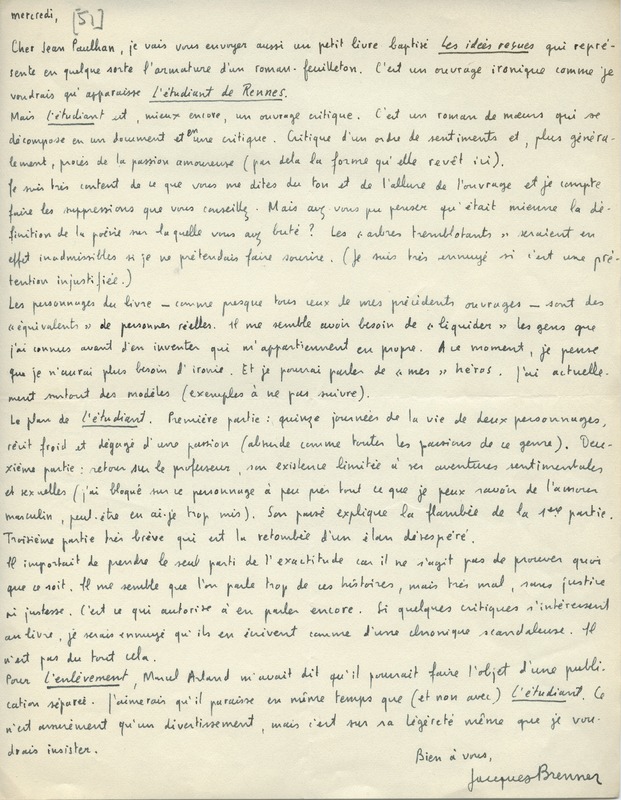 mercredi, [51]
Cher Jean Paulhan, je vais vous envoyer aussi un petit livre baptisé Les idées reçues qui repré-
sente en quelque sorte l'armature d'un roman-feuilleton. C'est un ouvrage ironique comme je
voudrais qu'apparaisse L'étudiant de Rennes.
Mais L'étudiant est, mieux encore, un ouvrage critique. C'est un roman de mœurs qui se
décompose en un document et en une critique. Critique d'un ordre de sentiments et, plus généra-
lement, procès de la passion amoureuse (par delà la forme qu'elle revêt ici).
Je suis très content de ce que vous me dites du ton et de l'allure de l'ouvrage et je compte
faire les suppressions que vous conseillez. Mais avez vous pu penser qu'était mienne la dé-
finition de la poésie sur laquelle vous avez buté ? Les « arbres tremblotants » seraient en
effet inadmissibles si je ne prétendais faire sourire. (Je suis très ennuyé si c'est une pré-
tention injustifiée.)
Les personnages du livre — comme presque tous ceux de mes précédents ouvrages — sont des
« équivalents » de personnes réelles. Il me semble avoir besoin de « liquider » les gens que
j'ai connus avant d'en inventer qui m'appartiennent en propre. A ce moment, je pense
que je n'aurai plus besoin d'ironie. Et je pourrai parler de « mes » héros. J'ai actuelle-
ment surtout des modèles (exemples à ne pas suivre).
Le plan de L'étudiant. Première partie : quinze journées de la vie de deux personnages,
récit froid et dégagé d'une passion (absurde comme toutes les passions de ce genre). Deu-
xième partie : retour sur le professeur, son existence limitée à ses aventures sentimentales
et sexuelles (j'ai bloqué sur ce personnage à peu près tout ce que je peux savoir de l'amour
masculin, peut-être en ai-je trop mis). Son passé explique la flambée de la 1ère partie.
Troisième partie très brève qui est la retombée d'un élan désespéré.
Il importait de prendre le seul parti de l'exactitude car il ne s'agit pas de prouver quoi
que ce soit. Il me semble que l'on parle trop de ces histoires, mais très mal, sans justice
ni justesse. C'est ce qui autorise à en parler encore. Si quelques critiques s'intéressent
au livre, je serais ennuyé qu'ils en écrivent comme d'une chronique scandaleuse. Il
n'est pas du tout cela.
Pour L'enlèvement, Marcel Arland m'avait dit qu'il pourrait faire l'objet d'une publi-
cation séparée. J'aimerais qu'il paraisse en même temps que (et non avec) L'étudiant. Ce
n'est assurément qu'un divertissement, mais c'est sur sa légèreté même que je vou-
drais insister.
Bien à vous,
Jacques Brenner